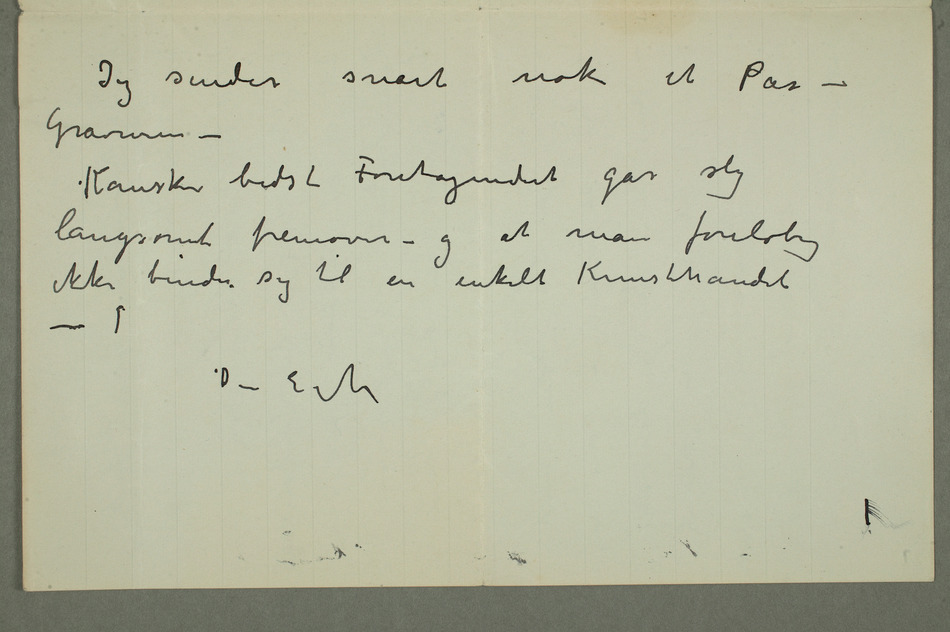 Jeg sender snart nok et Par –
Gravurer –
Kanske bedst Foretagendet går slig
langsomt fremover – og at man foreløbig
ikke binder sig til en enkelt Kunsthandel
— !
Din